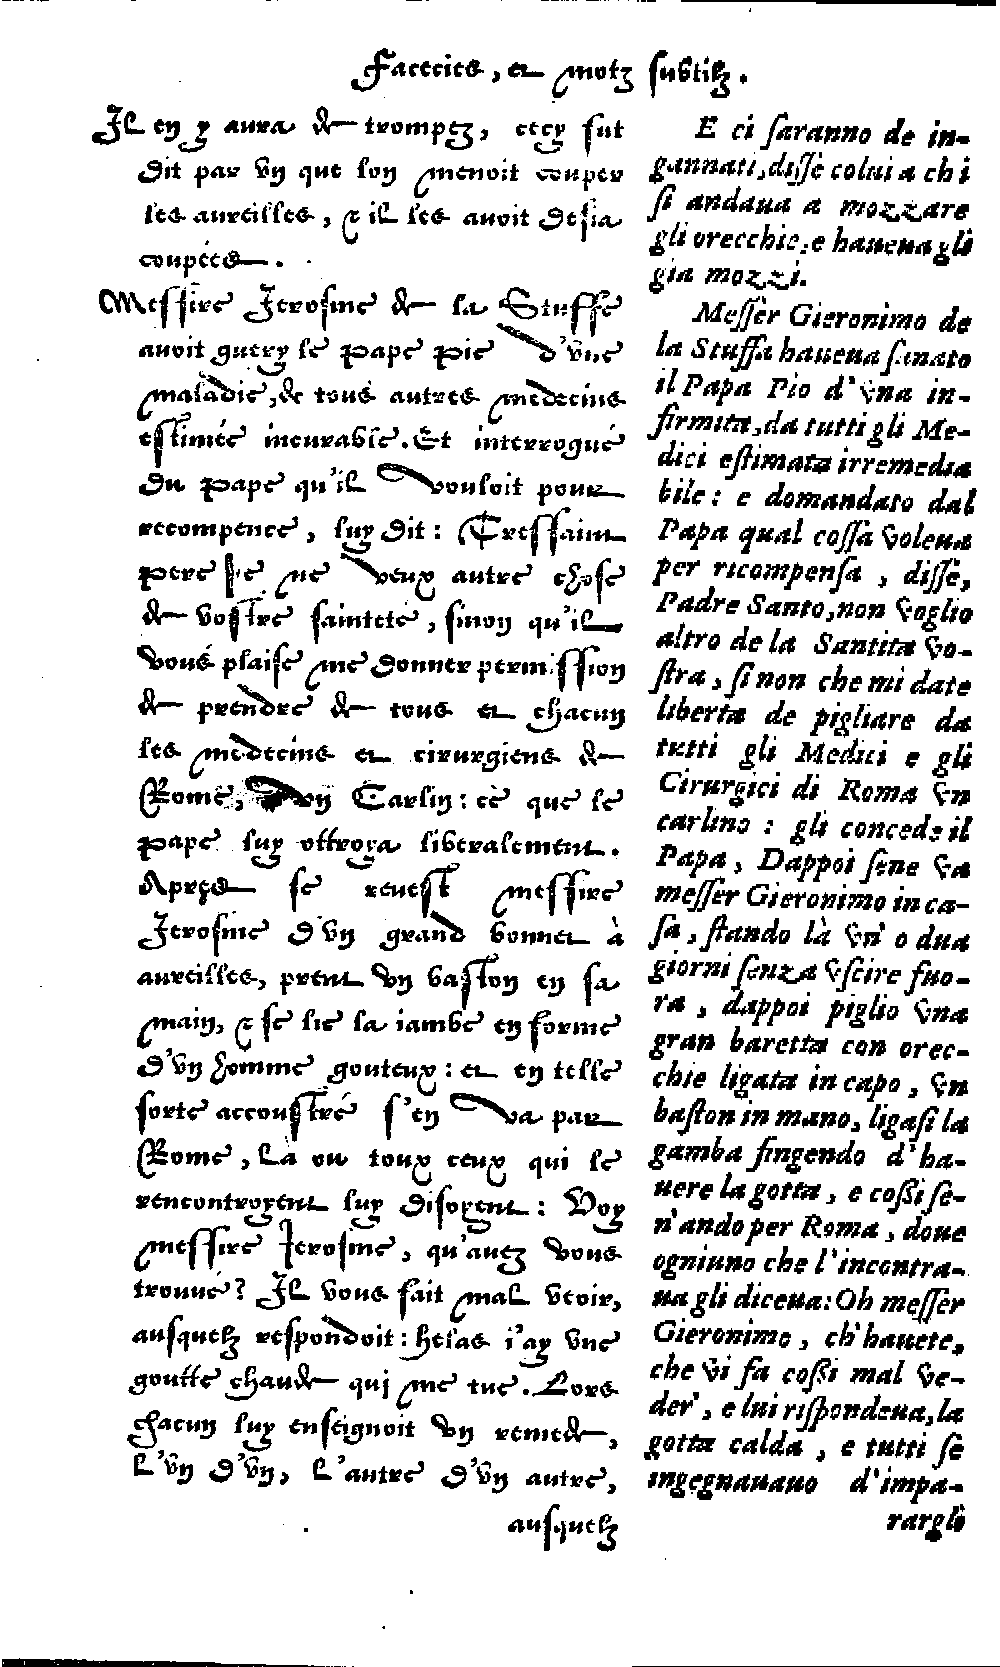 Facecies, et motz subtilz.
Il en y aura de trompez, cecy fut
dit par vn que lon menoit couper
les aureilles, & il les auoit desia
coupées.
Messire Ierosme de la Stuffe
auoit guery le Pape Pie d'vne
maladie, de tous autres medecins
estimée incurable. Et interrogué
du Pape qu'il vouloit pour
recompence, luy dit: Tressaint
Pere Ie ne veux autre chose
de vostre sainteté, sinon qu'il
vous plaise me donner permission
de prendre de tous et chacun
les medecins et cirurgiens de
Rome, vn Carlin: ce que le
Pape luy ottroya liberalement.
Apres se reuest messire
Ierosme d'vn grand bonnet à
aureilles, prent vn baston en sa
main, & se lie la iambe en forme
d'vn homme gouteux: et en telle
sorte accoustré s'en va par
Rome, Là ou toux ceux qui le
rencontroyent luy disoyent: Voy
messire Ierosme, qu'auez vous
trouué? Il vous fait mal veoir,
ausquelz respondoit: helas i'ay vne
goutte chaude qui me tue. Lors
chacun luy enseignoit vn remede,
L'vn d'vn, L'autre d'vn autre,
ausquelz
E ci saranno de in-
gannati, disse colui a chi
si andaua a mozzare
gli orecchie, e haueua gli
gia mozzi.
Messer Gieronimo de
la Stuffa haueua sanato
il Papa Pio d'vna in-
firmita, da tutti gli Me-
dici estimata irremedia
bile: e domandato dal
Papa qual cossa voleua
per ricompensa, disse,
Padre Santo, non voglio
altro de la Santita vo-
stra, si non che mi date
liberta de pigliare da
tutti gli Medici e gli
Cirurgici di Roma vn
carlino: gli concede il
Papa, Dappoi sene va
messer Gieronimo in ca-
sa, stando là vn' o dua
giorni senza vscire fuo-
ra, dappoi piglio vna
gran baretta con orec-
chie ligata in capo, vn
baston in mano, ligasi la
gamba fingendo d'ha-
uere la gotta, e cossi se-
n'ando per Roma, doue
ogniuno che l'incontra-
ua gli diceua: Oh messer
Gieronimo, ch'hauete,
che vi fa cossi mal ve-
der', e lui rispondeua, la
gotta calda, e tutti se
ingegnauano d'impa-
rargli